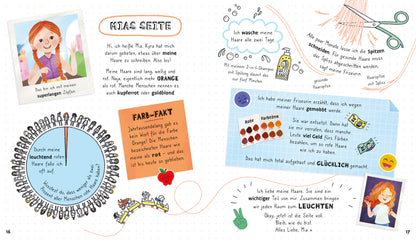 MIAS SEITE
Hi, ich heiße Mia. Kyra hat mich
darum gebeten, etwas über meine
Haare zu schreiben. Also los!
Meine Haare sind lang, wellig und
rot. Naja, eigentlich mehr ORANGE
als rot. Manche Menschen nennen es
auch kupferrot oder goldblond
Das bin ich auf meinem
superlangen Zopf
FARB-FAKT
Jahrtausendelang gab es
kein Wort für die Farbe
Orange! Die Menschen
bezeichneten Haare wie
meine als rot – und das
ist bis heute so geblieben.
Durch meine
leuchtend roten
Haare falle ich
oft auf.
Wusstest du, dass weniger als zwei
Prozent aller Menschen rote Haare haben?
16
Ich wasche meine
Haare alle zwei Tage.
Mit meinem 2-in-1-Shampoo
mit Spülung dauert das
nur fünf Minuten.
Alle paar Monate lasse ich die Spitzen
schneiden. Für gesunde Haare muss
der Spliss abgeschnitten werden,
sagt meine Friseurin.
gesunde
Haarspitze
Haarspitze
mit Spliss
Ich habe meiner Friseurin erzählt, dass ich wegen
meiner Haare gemobbt werde.
Rote Farbtöne
Sie war entsetzt. Dann hat
sie mir verraten, dass manche
Leute viel Geld fürs Färben
bezahlen, um so rote Haare
wie ich zu haben.
Das hat mich total aufgebaut und GLÜCKLICH gemacht.
Ich liebe meine Haare. Sie sind ein
wichtiger Teil von mir. Zusammen bringen
wir jeden Raum zum LEUCHTEN
Okay, jetzt ist die Seite voll.
Bleib, wie du bist.
Alles Liebe, Mia
17